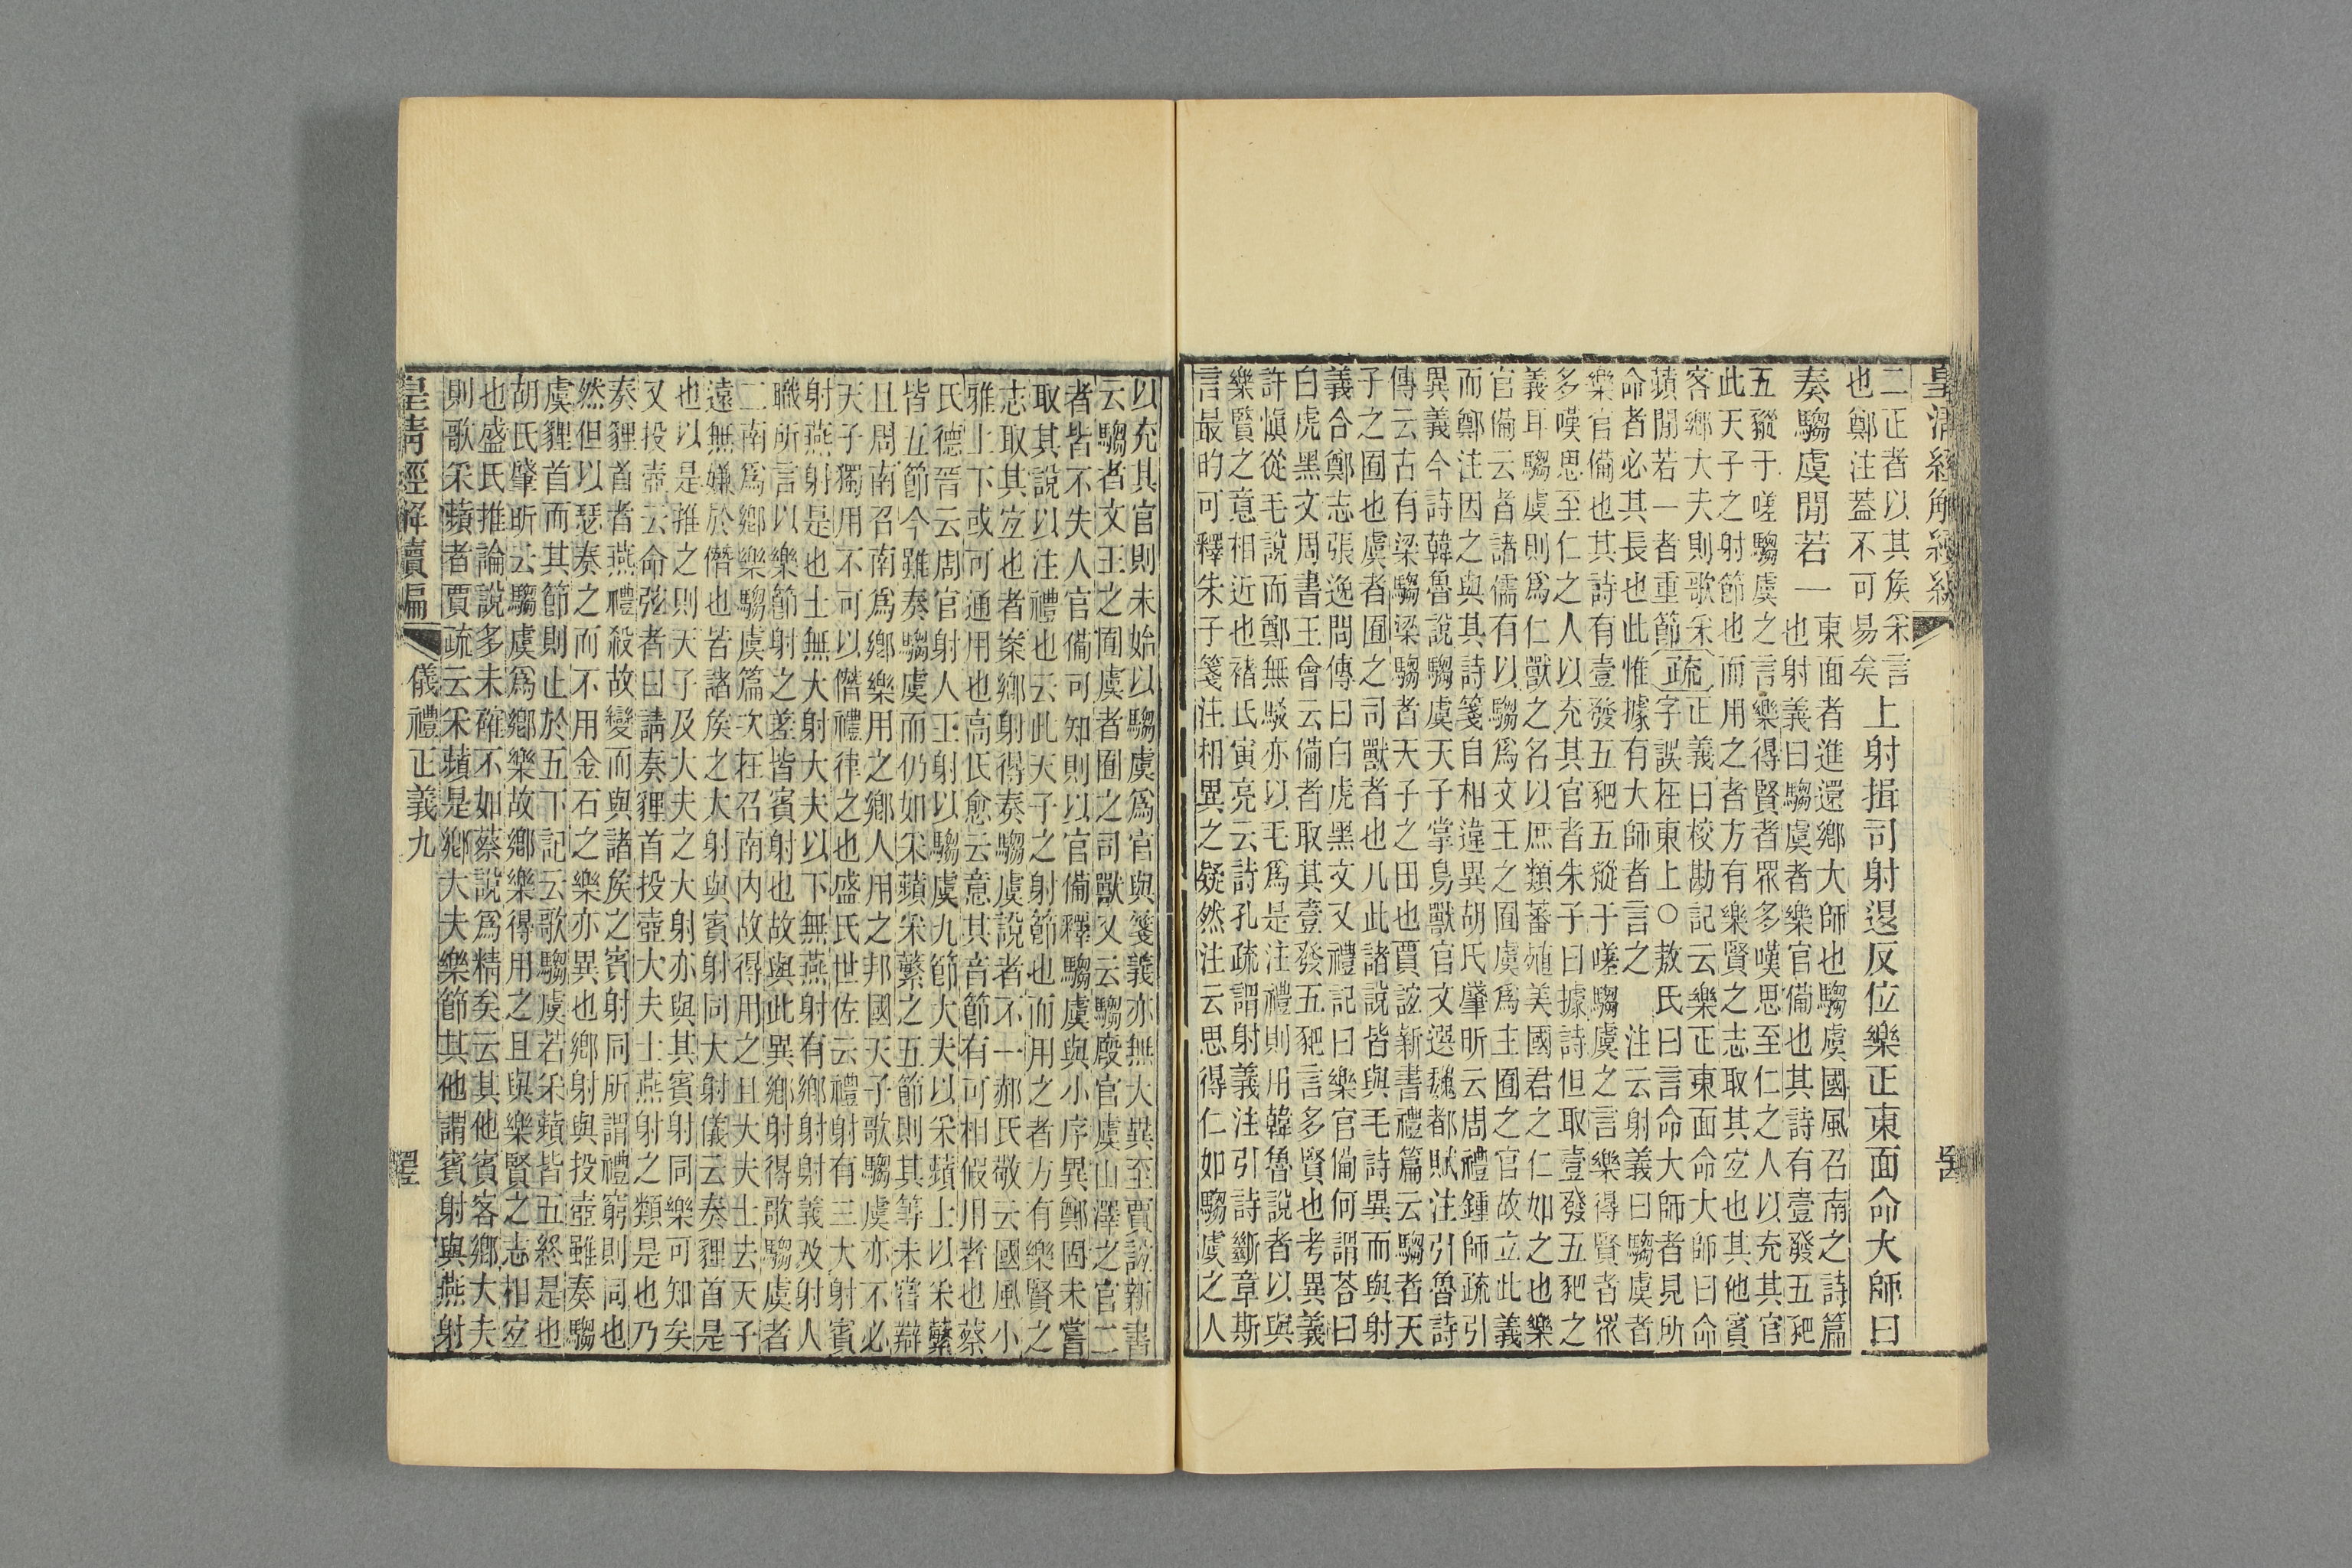 二正者以其矦采言
也鄭注蓋不可易矣
上射揖司射退反位樂正東面命大師曰
奏騶虞閒若一
東面者進還鄉大師也騶虞國風召南之詩篇
也射義曰騶虞者樂官備也其詩有壹發五豝
五豵于嗟騶虞之言樂得賢者眾多嘆思至仁之人以充其官
此天子之射節也而用之者方有樂賢之志取其宜也其他賓
客鄉大夫則歌采蘋
閒若一者重節疏正義曰校勘記云樂正東面命大師曰命
字誤在東上○敖氏曰言命大師者見所
命者必其長也此惟據有大師者言之 注云射義曰騶虞者
樂官備也其詩有壹發五豝五豵于嗟騶虞之言樂得賢者眾
多嘆思至仁之人以充其官者朱子曰據詩但取壹發五豝之
義耳騶虞則爲仁獸之名以庶類蕃殖美國君之仁如之也樂
官備云者諸儒有以騶爲文王之囿虞爲主囿之官故立此義
而鄭注因之與其詩箋自相違異胡氏肇昕云周禮鍾師疏引
異義今詩韓魯說騶虞天子掌鳥獸官文選魏都賦注引魯詩
傳云古有梁騶梁騶者天子之田也賈誼新書禮篇云騶者天
子之囿也虞者囿之司獸者也凡此諸說皆與毛詩異而與射
義合鄭志張逸問傳曰白虎黑文又禮記曰樂官備何謂荅曰
白虎黑文周書王會云備者取其壹發五豝言多賢也考異義
許愼從毛說而鄭無駁亦以毛爲是注禮則用韓魯說者以與
樂賢之意相近也褚氏寅亮云詩孔疏謂射義注引詩斷章斯
言最的可釋朱子箋注相異之疑然注云思得仁如騶虞之人
以充其官則未始以騶虞爲官與箋義亦無大異至賈誼新書
云騶者文王之囿虞者囿之司獸又云騶廏官虞山澤之官二
者皆不失人官備可知則以官備釋騶虞與小序異鄭固未嘗
取其說以注禮也云此天子之射節也而用之者方有樂賢之
志取其宜也者案鄉射得奏騶虞說者不一郝氏敬云國風小
雅上下或可通用也高氏愈云意其音節有可相假用者也蔡
氏德晉云周官射人王射以騶虞九節大夫以采蘋上以采蘩
皆五節今雖奏騶虞而仍如采蘋采蘩之五節則其等未嘗辯
且周南召南爲鄉樂用之鄉人用之邦國天子歌騶虞亦不必
天子獨用不可以僭禮律之也盛氏世佐云禮射有三大射賓
射燕射是也士無大射大夫以下無燕射有鄉射射義及射人
職所言以樂節射之差皆賓射也故與此異鄉射得歌騶虞者
二南爲鄉樂騶虞篇次在召南内故得用之且大夫士去天子
遠無嫌於僭也若諸矦之大射與賓射同大射儀云奏貍首是
也以是推之則天子及大夫之大射亦與其賓射同樂可知矣
又投壺云命弦者曰請奏貍首投壺大夫士燕射之類是也乃
奏貍首者燕禮殺故變而與諸矦之賓射同所謂禮窮則同也
然但以瑟奏之而不用金石之樂亦異也鄉射與投壺雖奏騶
虞貍首而其節則止於五下記云歌騶虞若采蘋皆五終是也
胡氏肇昕云騶虞爲鄉樂故鄉樂得用之且與樂賢之志相宜
也盛氏推論說多未確不如蔡說爲精矣云其他賓客鄉大夫
則歌采蘋者賈疏云采蘋是鄉大夫樂節其他謂賓射與燕射
皇淸經解續編
儀禮正義九